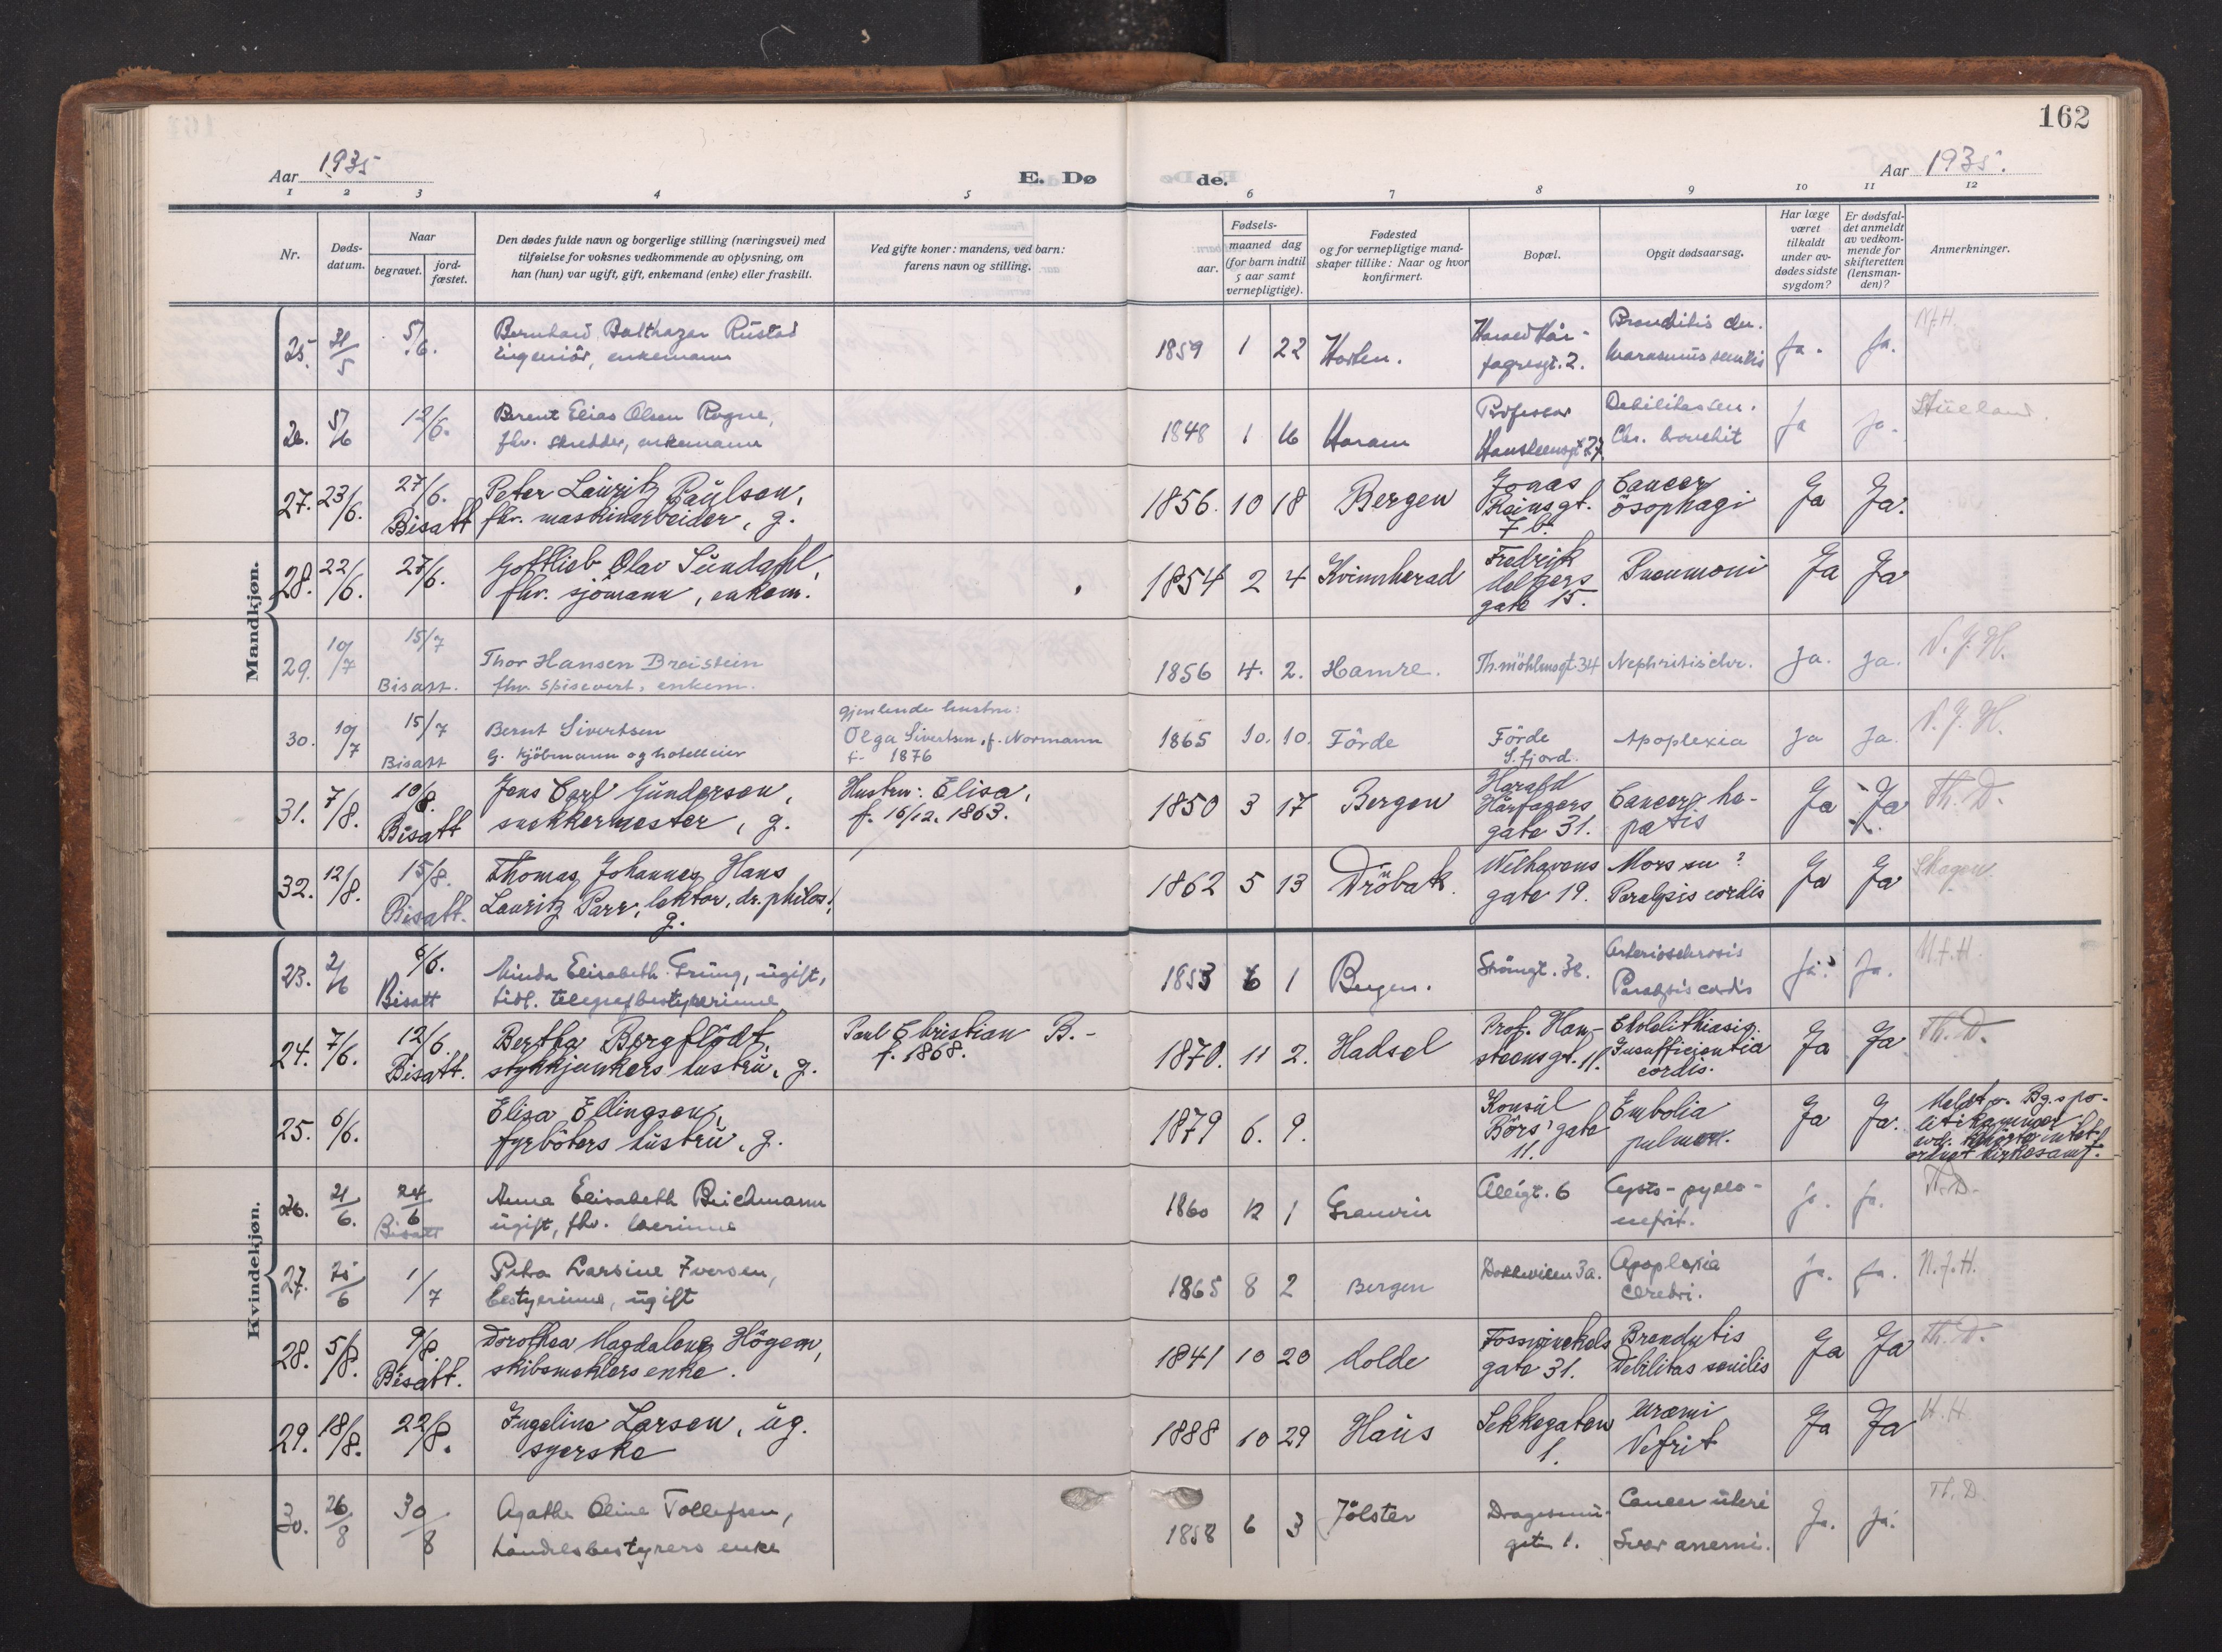 162
Aar 1935
E. Dø de.
Aar 1935.
1 2 3 4 5 6 7 8 9 10 11 12
Nr.
Døds-
datum.
Naar
begravet.
jord-
fæstet.
Den dødes fulde navn og borgerlige stilling (næringsvei) med
tilføielse for voksnes vedkommende av oplysning, om
han (hun) var ugift, gift, enkemand (enke) eller fraskilt.
Ved gifte koner: mandens, ved barn:
farens navn og stilling.
Fødsels-
aar.
maaned dag
(for barn indtil
5 aar samt
vernepligtige).
Fødested
og for vernepligtige mand-
skaper tillike: Naar og hvor
konfirmert.
Bopæl.
Opgit dødsaarsag.
Har læge
været
tilkaldt
under av-
dødes sidste
sygdom?
Er dødsfal-
det anmeldt
av vedkom-
mende for
skifteretten
(lensman-
den)?
Anmerkninger.
Mandkjøn.
25. 31/5 5/6. Bernhard Balthazar Rustad
ingeniør, enkemann
1859 1 22 Horten. Harald Hår-
fagresgt. 2. marasmus senilis Ja. Ja. N.f.H.
26. 5/6 12/6. Berent Elias Olsen Rogne,
fhv. skredder, enkemann
1848 1 16 Haram Professor
Hansteensgt 27. Debilitas sen.
Chr. bronchit Ja Ja.
27. 23/6. 27/6. Bisatt Peter Lauritz Paulson,
fhv. maskinarbeider, g.
1856. 10 18 Bergen Jonas
Reinsgt.
7 b. Cancer
ösophagi Ja Ja.
28. 22/6. 27/6. Gottlieb Olav Sundahl,
fhv. sjömann, enkem.
1854 2 4 Kvinnherad Fredrik
Meltzers
gate 15. Pneumoni Ja Ja
29. 10/7 15/7 Bisatt. Thor Hansen Breistein
fhv. spisevert, enkem.
1856 4. 2. Hamre. Th. möhlensgt 34 Nephritis chr. Ja. Ja. N.f.H.
30. 10/7 15/7 Bisatt Bernt Sivertsen
G. kjöbmann og hotelleier
gjenlevende hustru:
Olga Sivertsen, f. Normann
f. 1876
1865 10. 10. Förde Förde
S. fjord. Apoplexia Ja Ja. N.f.H.
31. 7/8. 10/8. Bisatt Jens Carl Gunderson,
snekkermester, g.
Hustru: Elisa,
f. 16/12. 1863.
1850 3 17 Bergen Harald
Hårfagers
gate 31. Cancer he-
patis Ja Ja Th. D.
32. 12/8. 15/8. Bisatt. Thomas Johannes Hans
Lauritz Parr, lektor, dr. philos,
g.
1862 5 13 Dröbak. Welhavens
gate 19. Mors su ?
Paralysis cordis Ja Ja Skagen
Kvindekjøn.
23. 2/6 6/6. Bisatt Minda Elisabeth Grung, ugift,
tidl. telegrafbestyrerinne
1853 6 1 Bergen. Strömgt. 32. Arteriosclerosis
Paralysis cordis Ja. Ja. N.f.H.
24. 7/6. 12/6. Bisatt. Bertha Bergflödt,
stykkjunkers hustru, g.
Paul Christian B.-
f. 1868.
1870. 11 2. Hadsel Prof. Han-
steensgt. 11. Cholelithiasis.
Insufficientia
cordis. Ja Ja Th. D.
25. 6/6. Elisa Ellingsen,
fyrböters hustru, g.
1879 6. 9. Konsul
Börs' gate
11. Embolia
pulmon. Ja Ja. Meldt v. Bg.s po-
litikammer
26. 21/6. 24/6 Bisatt Anna Elisabeth Brichmann
ugift, fhv. lærerinne
1860 12 1 Granvin Allégt. 6 Cysto-pyelo-
nefrit. ja. ja. Th. D.
27. 25/6 1/7 Petra Larsine Iversen,
bestyrerinne, ugift
1865 8 2 Bergen Dokkeveien 3a. Apoplexia
cerebri. ja. ja. N.f.H.
28. 5/8. 9/8. Bisatt. Dorothea Magdalena Högem,
skibsmeklers enke.
1841 10 20 Molde Fosswinckels
gate 31. Bronchitis
Debilitas senilis Ja Ja Th. D.
29. 18/8. 22/8. Ingeline Larsen, ug.
syerske
1888 10 29 Haus Sekkegaten
1. Uræmi
Nefrit Ja Ja H.H.
30. 26/8 30/8 Agathe Oline Tollefsen,
handelsbestyrers enke
1858 6 3 Jölster
gtn 1. Cancer uteri
Svær anemi. Ja. Ja. Th. D.